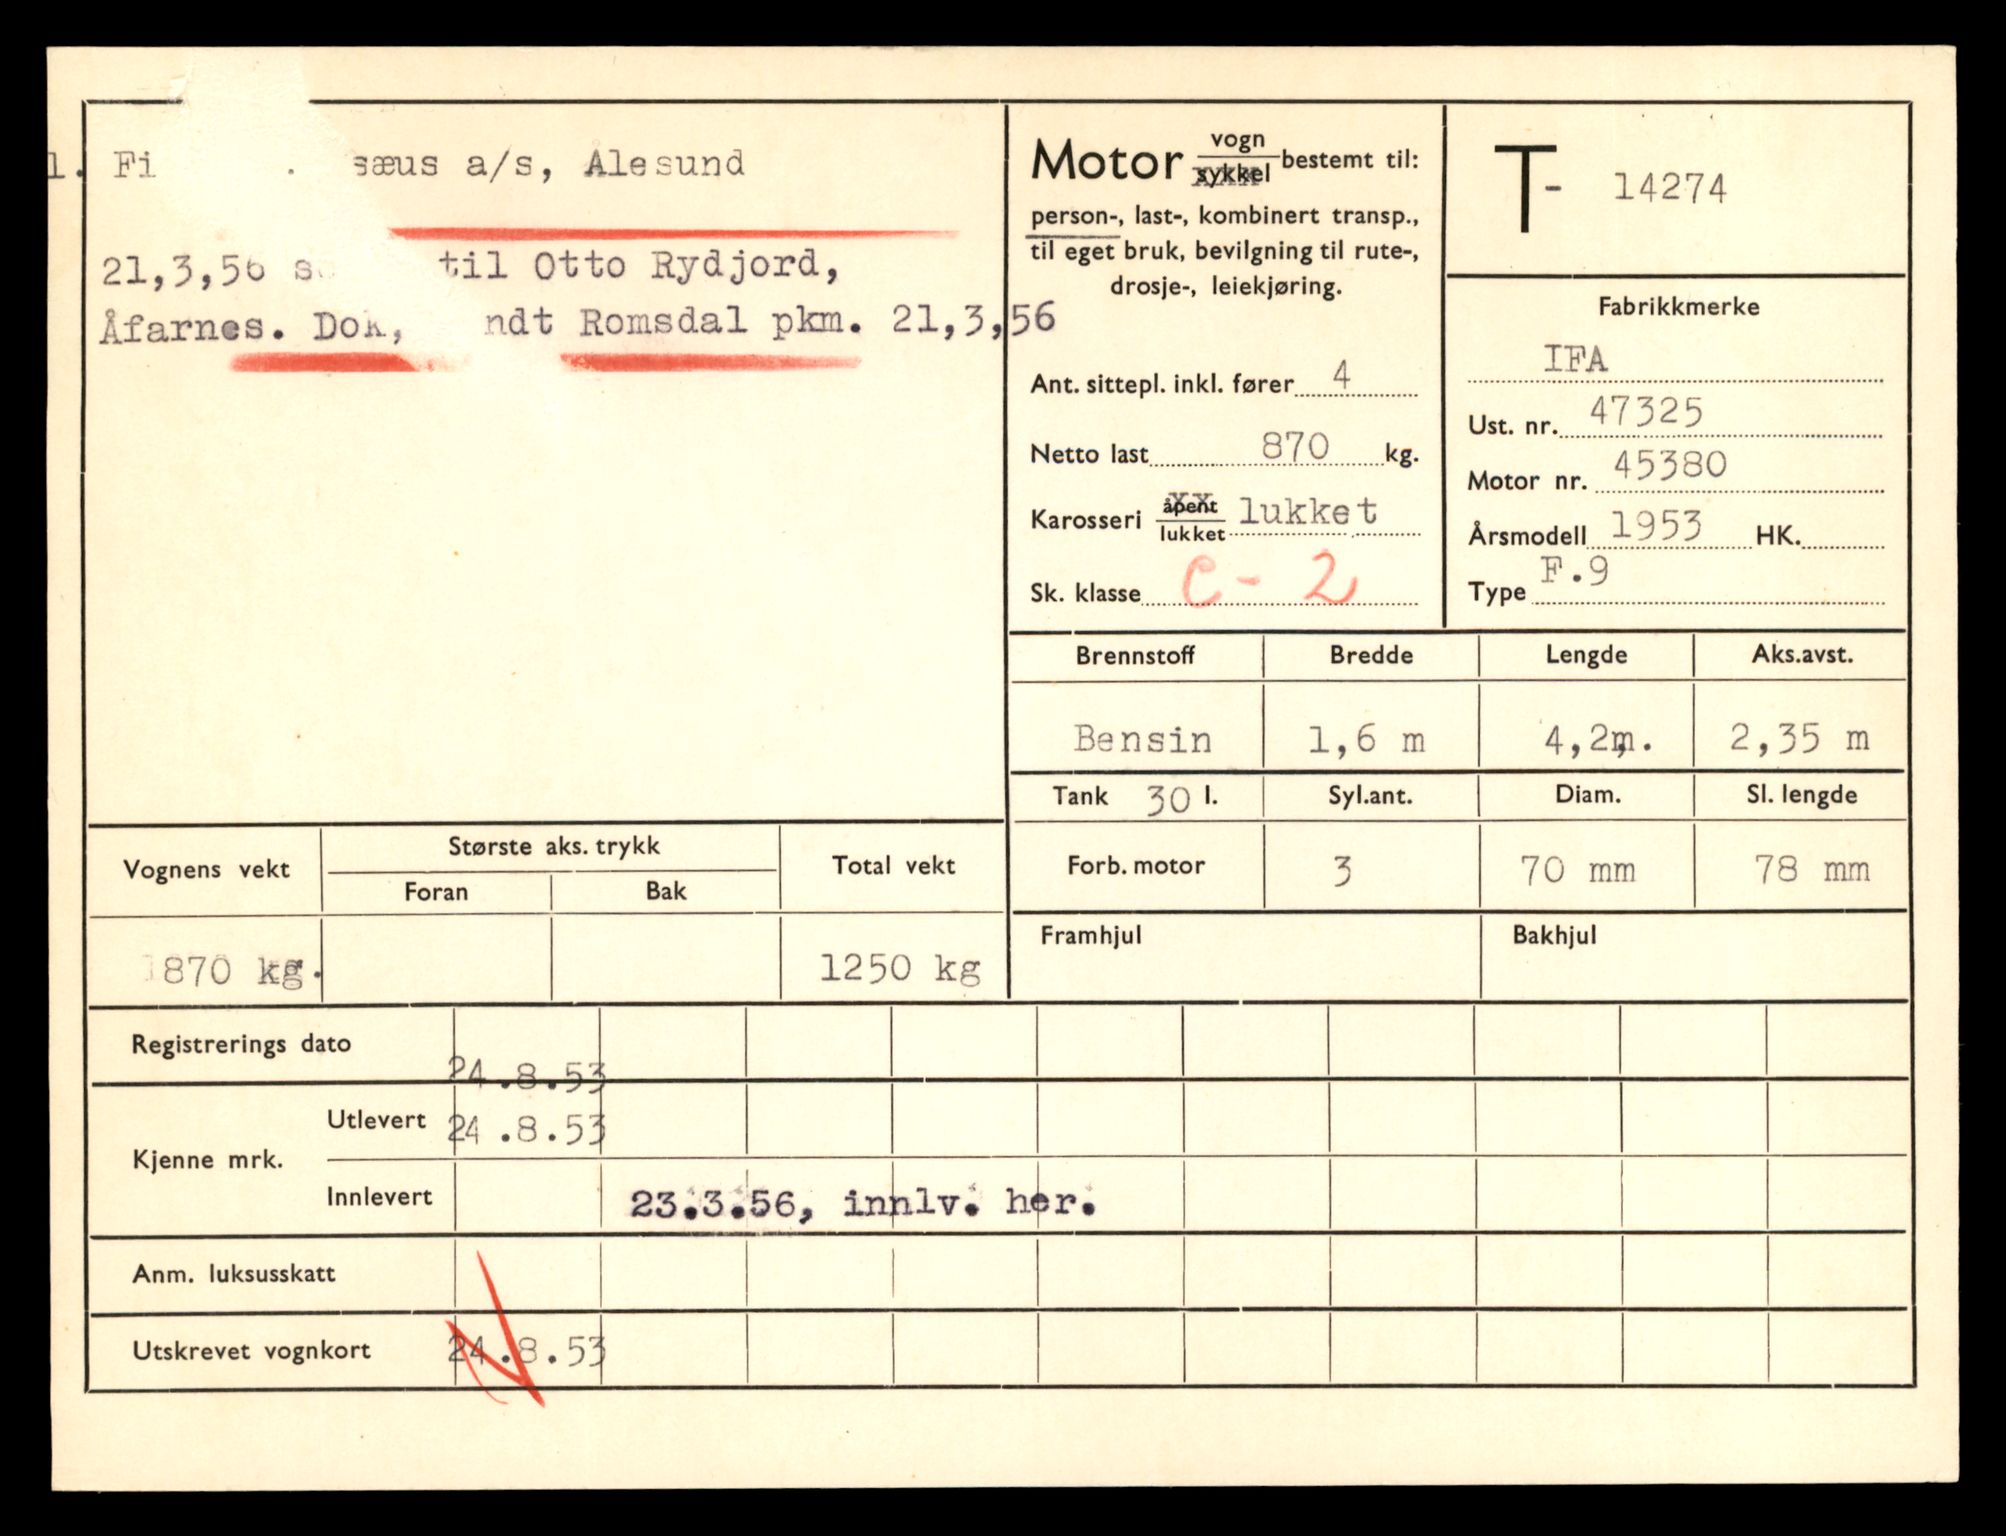 1. Fi . sæus a/s, Ålesund
21,3,56 s til Otto Rydjord,
Åfarnes. Dok, ndt Romsdal pkm. 21,3,56
Motor vogn/sykkel bestemt til:
person-, last-, kombinert transp.,
til eget bruk, bevilgning til rute-,
drosje-, leiekjøring.
Ant. sittepl. inkl. fører 4
Netto last 870 kg.
Karosseri åpent/lukket lukket
Sk. klasse C - 2
T- 14274
Fabrikkmerke
IFA
Ust. nr. 47325
Motor nr. 45380
Årsmodell 1953 HK.
Type F.9
Brennstoff Bredde Lengde Aks.avst.
Bensin 1,6 m 4,2m. 2,35 m
Tank 30 l. Syl.ant. Diam. Sl. lengde
Forb. motor 3 70 mm 78 mm
Framhjul Bakhjul
Vognens vekt Største aks. trykk Total vekt
Foran Bak
870 kg. 1250 kg
Registrerings dato 24.8.53
Kjenne mrk. Utlevert 24.8.53
Innlevert 23.3.56, innlv. her.
Anm. luksusskatt
Utskrevet vognkort 24.8.53